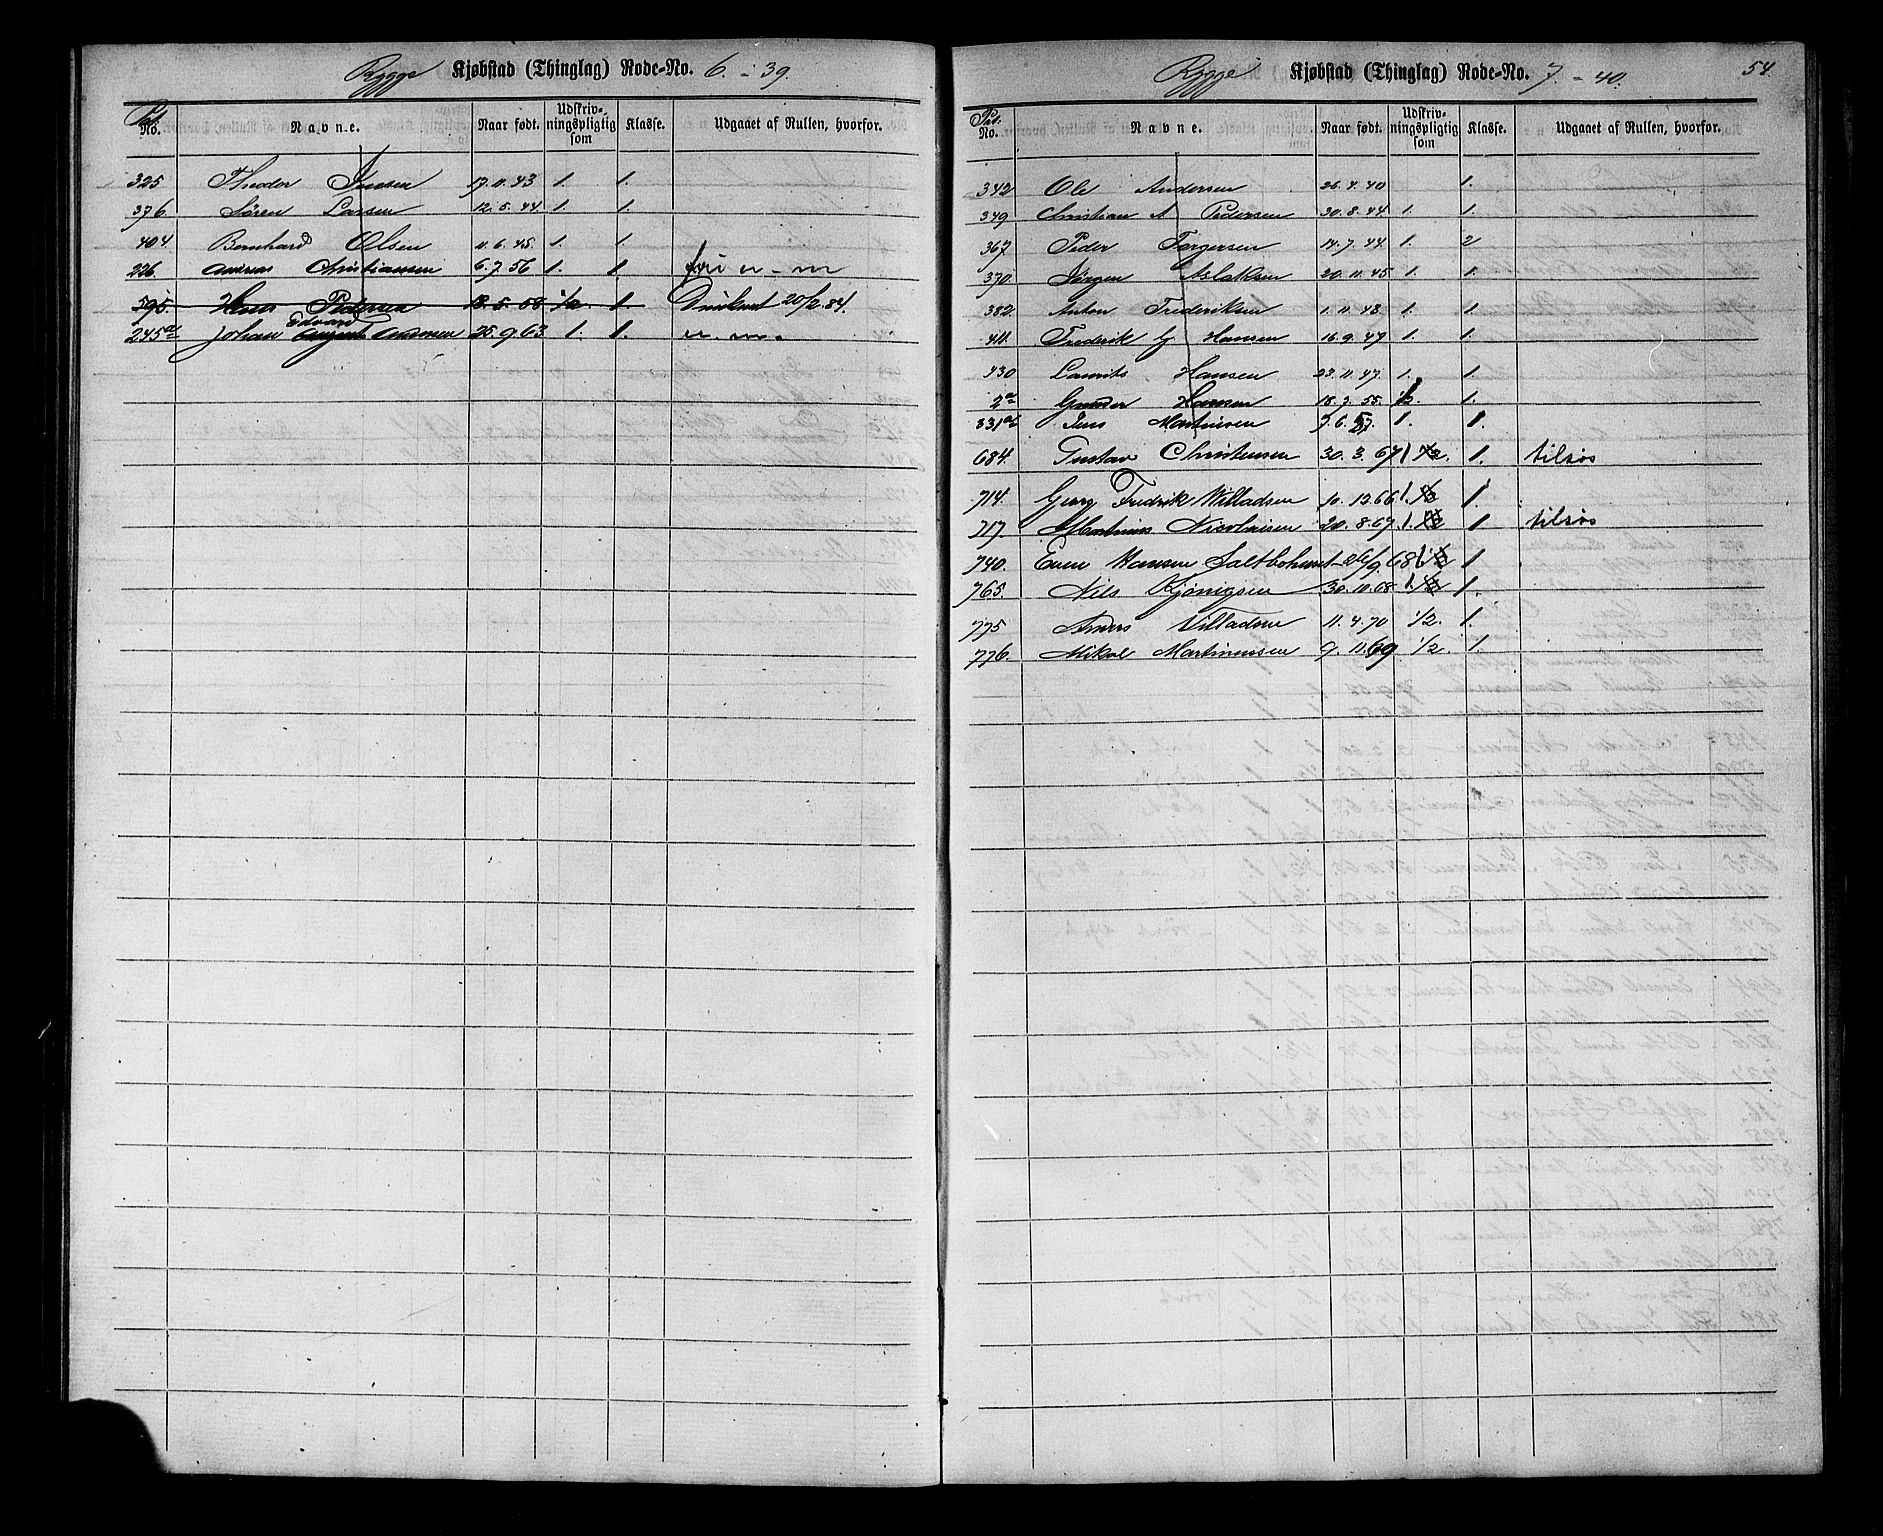 Rygge Kjøbstad (Thinglag) Rode-No. 6. - 39.
Pat. No. Navne. Naar født. Udskriv-ningspligtig som Klasse. Udgaaet af Rullen, hvorfor.
325 Theodor Jensen 17.11.43 1. 1.
376. Søren Larsen 12.5.44. 1. 1.
404. Bernhard Olsen 11.6.45. 1. 1.
226. Andreas Christiansen 6.7.56 1. 1.
595. Hans Pedersen 5.58 1/2. 1. Druknet 20/2.84.
245a Johan Edvard Andersen 25.9.63. 1. 1.
Rygge Kjøbstad (Thinglag) Rode-No. 7. - 40. 54.
Pat. No. Navne. Naar født. Udskriv-ningspligtig som Klasse. Udgaaet af Rullen, hvorfor.
342 Ole Andersen 26.4.40 1.
349 Christian A Pedersen 30.8.44 1. 1.
367. Peder Torgersen 14.7.44 1. 2
370. Jørgen Aslaksen 20.11.45 1. 1.
382. Anton Frederiksen 1.11.43. 1. 1.
411. Frederik G Hansen 16.9.47 1. 1.
430 Laurits Hansen 23.11.47. 1. 1.
2a Gunder Hansen 18.3.55. 1.
331a Jens Martinsen 7.6.57. 1. 1.
684. Gustav Christensen 30.3.67 1 1/2. 1. tilsøs
714. Georg Fredrik Willadsen 10.12.66 1. 1/2 1.
717. Martinius Nicolaisen 20.8.67. 1. 1/2 1 tilsøs
740. Even Hansen Saltboheset 26/9.68 1 1/2 1
765. Nils Kjønigsen 30.10.68 1. 1/2 1.
775 Anders Villadsen 11.4.70 1/2. 1.
776. Mikal Martinsen 9.11.69 1/2 1.